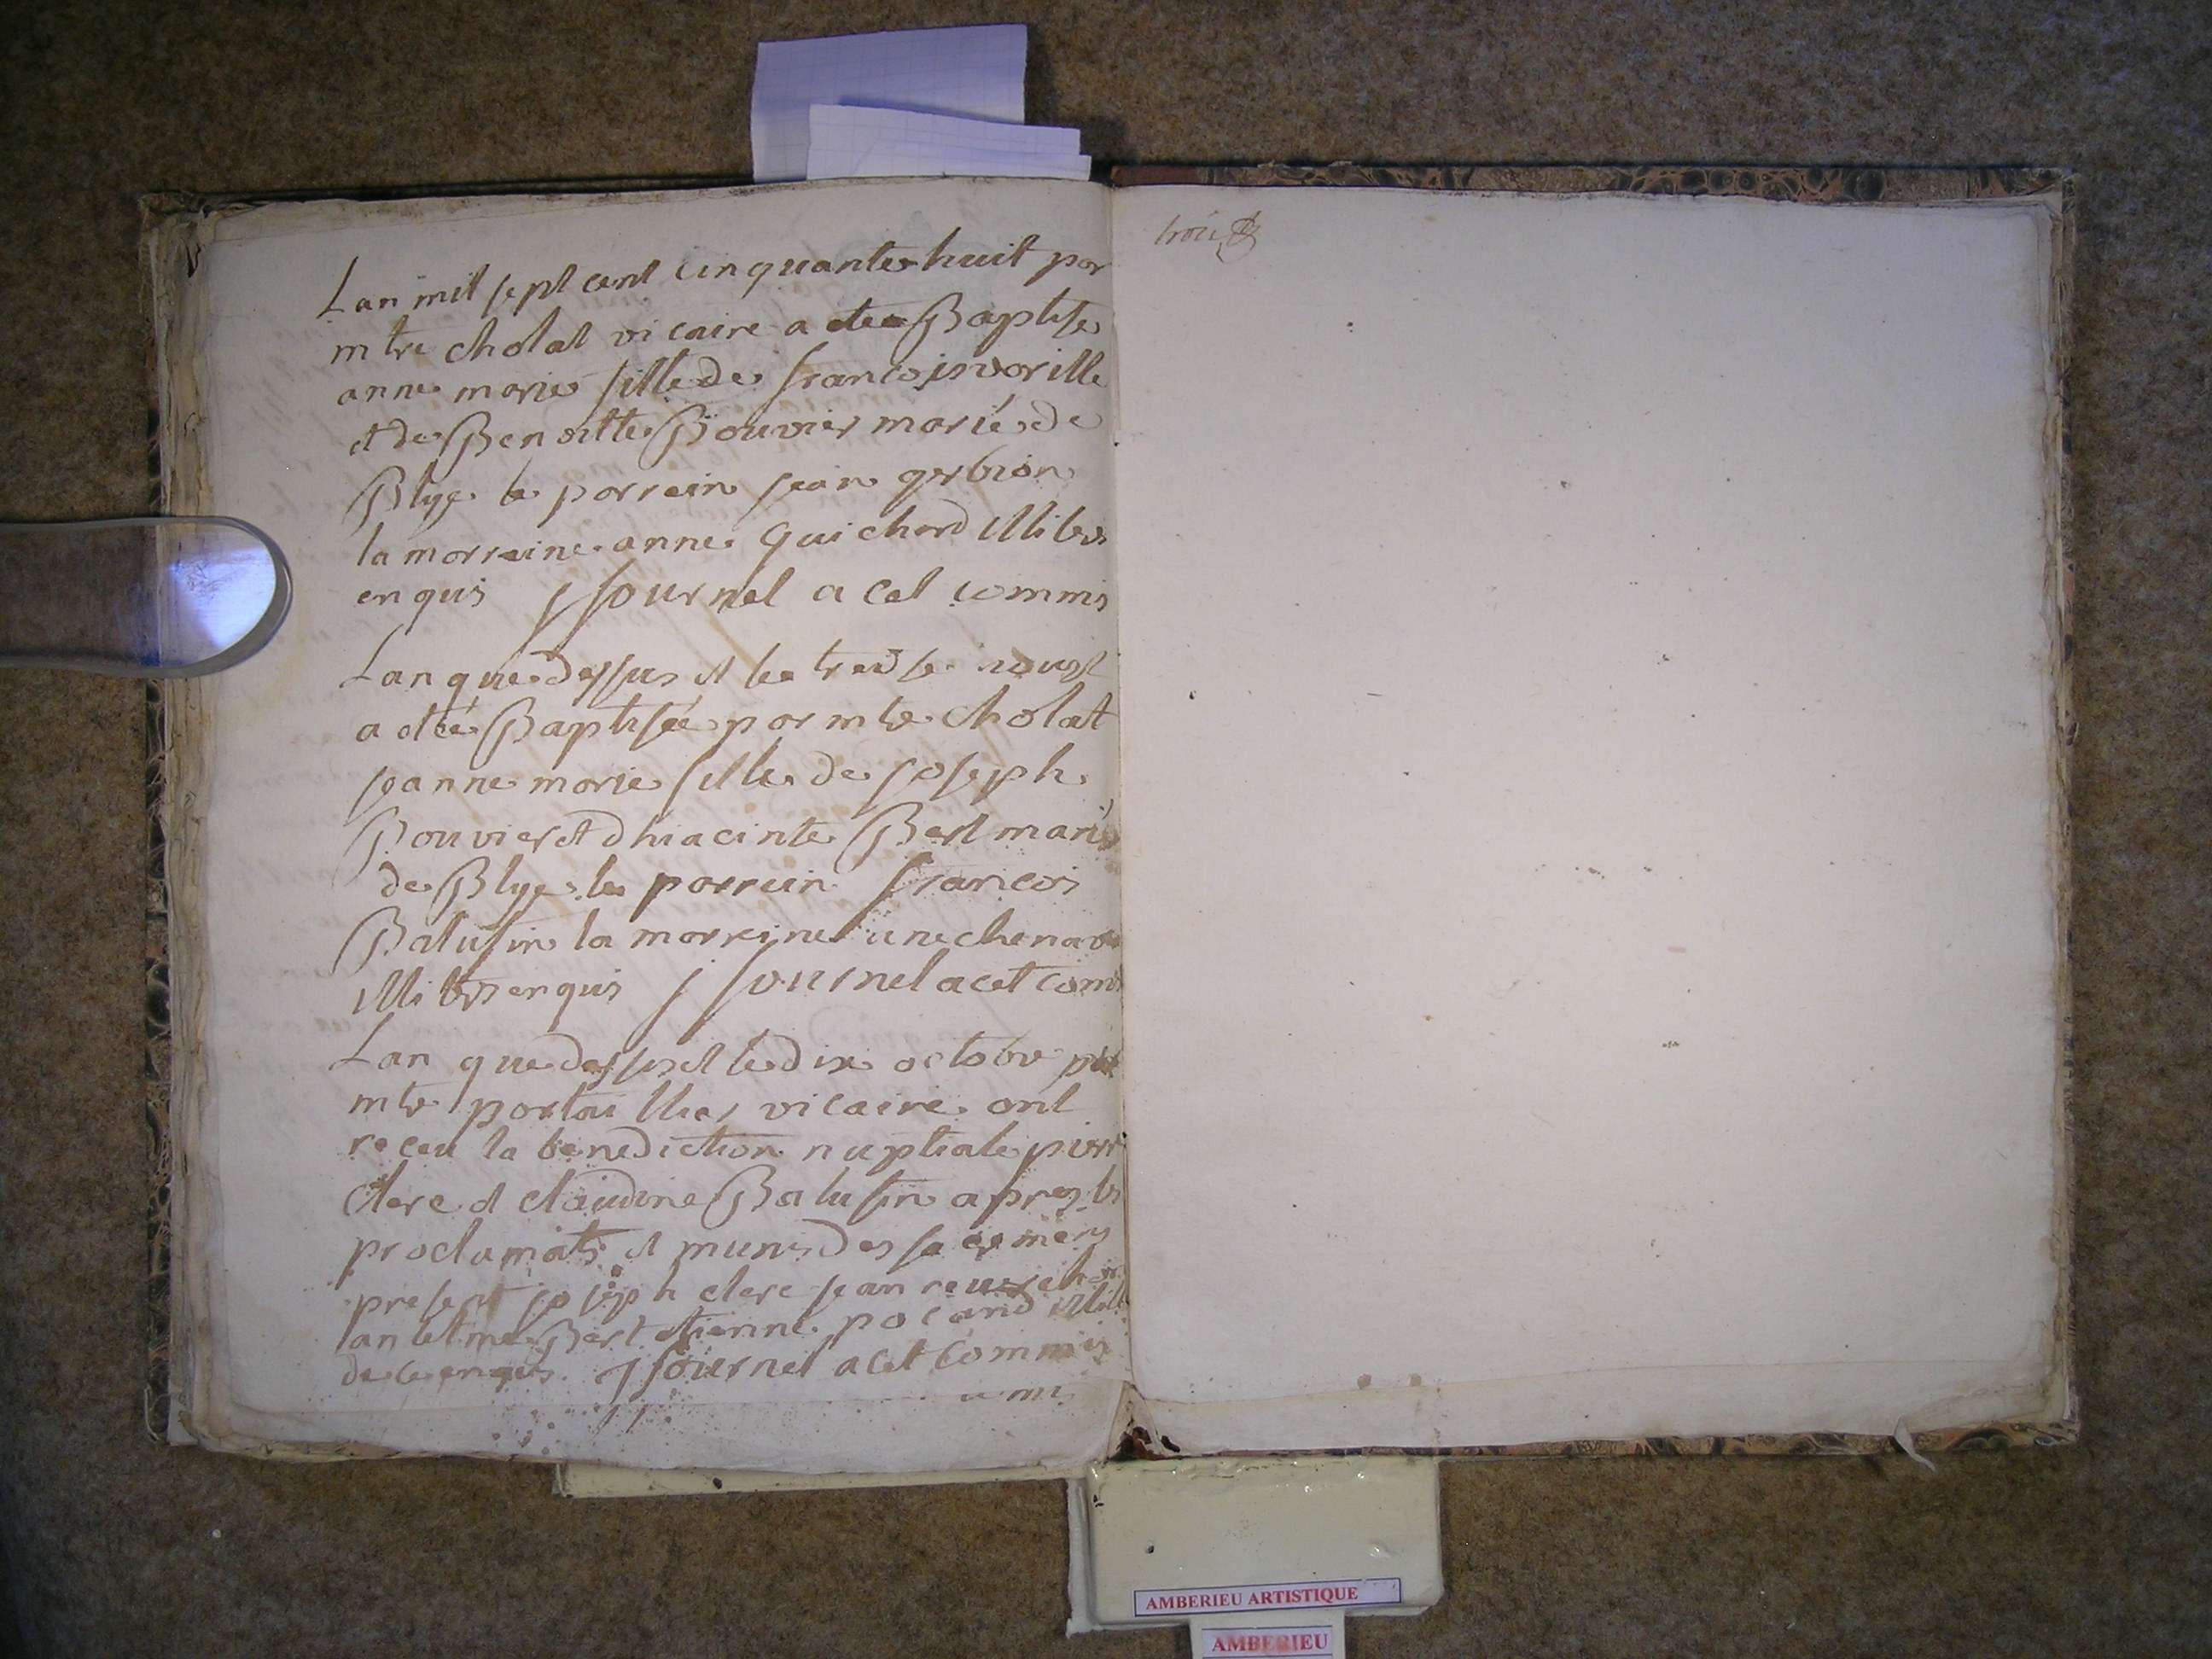 Lan mil sept cent cinquante huit par
mtre cholat vicaire a etee Baptisee
anne marie fille de francois vorille
et de Benoitte Bouvier mariés de
Blye le parrein jean gerbion
la marraine anne Guichard illiteres
enquis j fournel a cet commis
Lan que dessus et le treise aoust
a etéé Baptiséé par mtre Cholat
joanne marie fille de joseph
Bouvier et dhiacinte Bert mariés
de Blye le parrein francois
Balufin la marreine
illitres enquis j fournel a cet comis
Lan que dessus et le dix octobre par
mtre portaillier vicaire ont
receu la benediction nuptiale pierre
clerc et claudine Balufin apres les
proclamats et munis des sacremens
present joseph clerc jean
antelme Bert etienne pocand
de ce enquis j fournel a cet commis
trois
AMBERIEU ARTISTIQUE
AMBERIEU